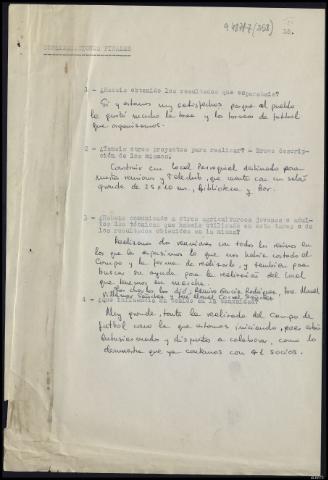 10.
CONSIDERACIONES FINALES
1 - ¿Habeis obtenido los resultados que esperabais?
Si y estamos muy satisfechos porque al pueblo
le gustó mucho la base y los torneos de futbol
que organizamos.
2 - ¿Teneis otros proyectos para realizar? - Breve descrip-
ción de los mismos.
Construir un local Parroquial destinado para
nuestra reuniones y Teleclub, que cuenta con un salón
grande de 25 x 10 m, Biblioteca y Bar.
3 - ¿Habeis comunicado a otros agricultores jovenes o adul-
tos las técnicas que habeis utilizado en esta tarea o de
los resultados obtenidos en la misma?
Realizamos dos reuniones con todos los vecinos en
los que les expusimos lo que nos había costado el
Campo y la forma de realizarlo, y también para
buscar su ayuda para la realización del local
que tenemos en marcha.
Las charlas las dió, Ramiro García Rodriguez, José Manuel
Villamor Sánchez y José Manuel
Muy grande, tanto la realizada del Campo de
futbol como la que estamos iniciando, pues están
entusiasmados y dispuestos a colaborar, como lo
demuestra que ya contamos con 41 socios.